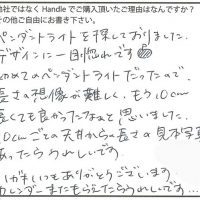 他社ではなく Handle でご購入頂いたご理由はなんですか?
その他ご自由にお書き下さい。
ペンダントライトを探しておりました。
デザインに一目惚れです
初めてのペンダントライトだったので、
長さの想像が難しく、もう10cm
長くても良かったなぁと思いました。
10cmごとの天井からの長さの見本写真
あったらうれしいです。
いつもありがとうございます。
カレンダーまたもらえたらうれしいです…